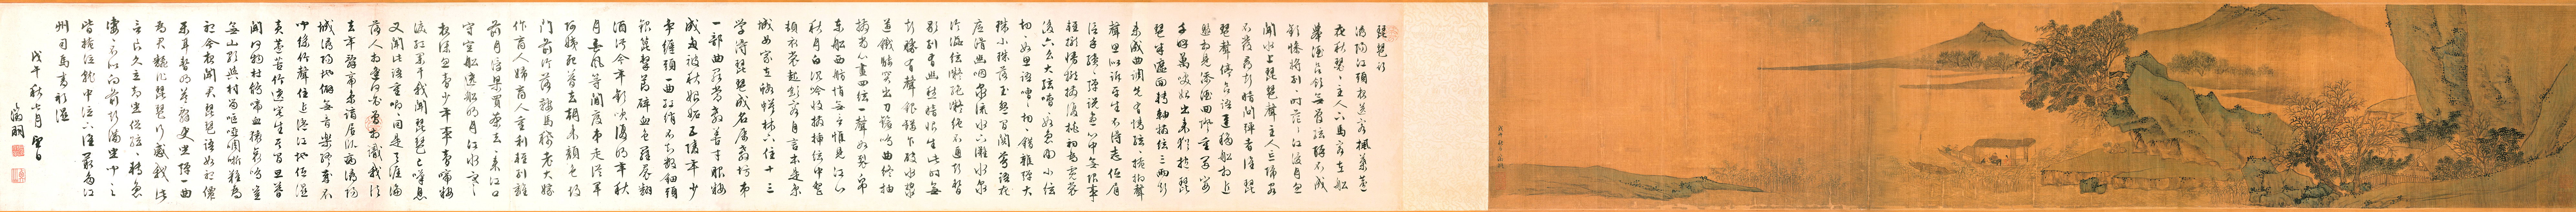 琵琶行
潯陽江頭夜送客楓葉荻
花秋瑟瑟主人下馬客在船
舉酒欲飲無管絃醉不成
歡慘將別別時茫茫江浸月忽
聞水上琵琶聲主人忘歸客
不發尋聲暗問彈者誰琵
琶聲停欲語遲移船相近
邀相見添酒回燈重開宴
千呼萬喚始出來猶抱琵
琶半遮面轉軸撥絃三兩聲
未成曲調先有情絃絃掩抑
聲聲思似訴平生不得志低眉
信手續續彈說盡心中無限事
輕攏慢撚抹復挑初為霓裳
後六么大絃嘈嘈如急雨小絃
切切如私語嘈嘈切切錯雜彈大
珠小珠落玉盤間關鶯語花
底滑幽咽泉流水下灘水泉
冷澀絃凝絕凝絕不通聲暫
歇別有幽愁暗恨生此時無
聲勝有聲銀瓶乍破水漿
迸鐵騎突出刀鎗鳴曲終抽
撥當心畫四絃一聲如裂帛
東船西舫悄無言惟見江心
秋月白沉吟收撥插絃中整
頓衣裳起斂容自言本是京
城女家在蝦蟆陵下住十三
學得琵琶成名屬教坊第
一部曲罷常教善才服妝
成每被秋娘妬五陵年少
爭纏頭一曲紅綃不知數鈿頭
銀篦擊節碎血色羅裙翻
酒污今年歡笑復明年秋
月春風等閒度弟走從軍
阿姨死暮去朝來顏色故
門前冷落鞍馬稀老大嫁
作商人婦商人重利輕別離
前月浮梁買茶去去來江口
守空船遶船明月江水寒
夜深忽夢少年事夢啼妝
淚紅闌干我聞琵琶已嘆息
又聞此語重唧唧同是天涯淪
落人相逢何必曾相識我從
去年辭帝京謫居臥病潯陽
城潯陽地僻無音樂終歲不
聞絲竹聲住近湓江地低濕
黃蘆苦竹遶宅生其間旦暮
聞何物杜鵑啼血猿哀鳴豈
無山歌與村笛嘔啞啁哳難為
聽今夜聞君琵琶語如聽仙
樂耳暫明莫辭更坐彈一曲
為君翻作琵琶行感我此
言良久立却坐促絃絃轉急
淒淒不似向前聲滿坐聞之
皆掩泣就中泣下誰最多江
州司馬青衫濕
戊午秋七月望日